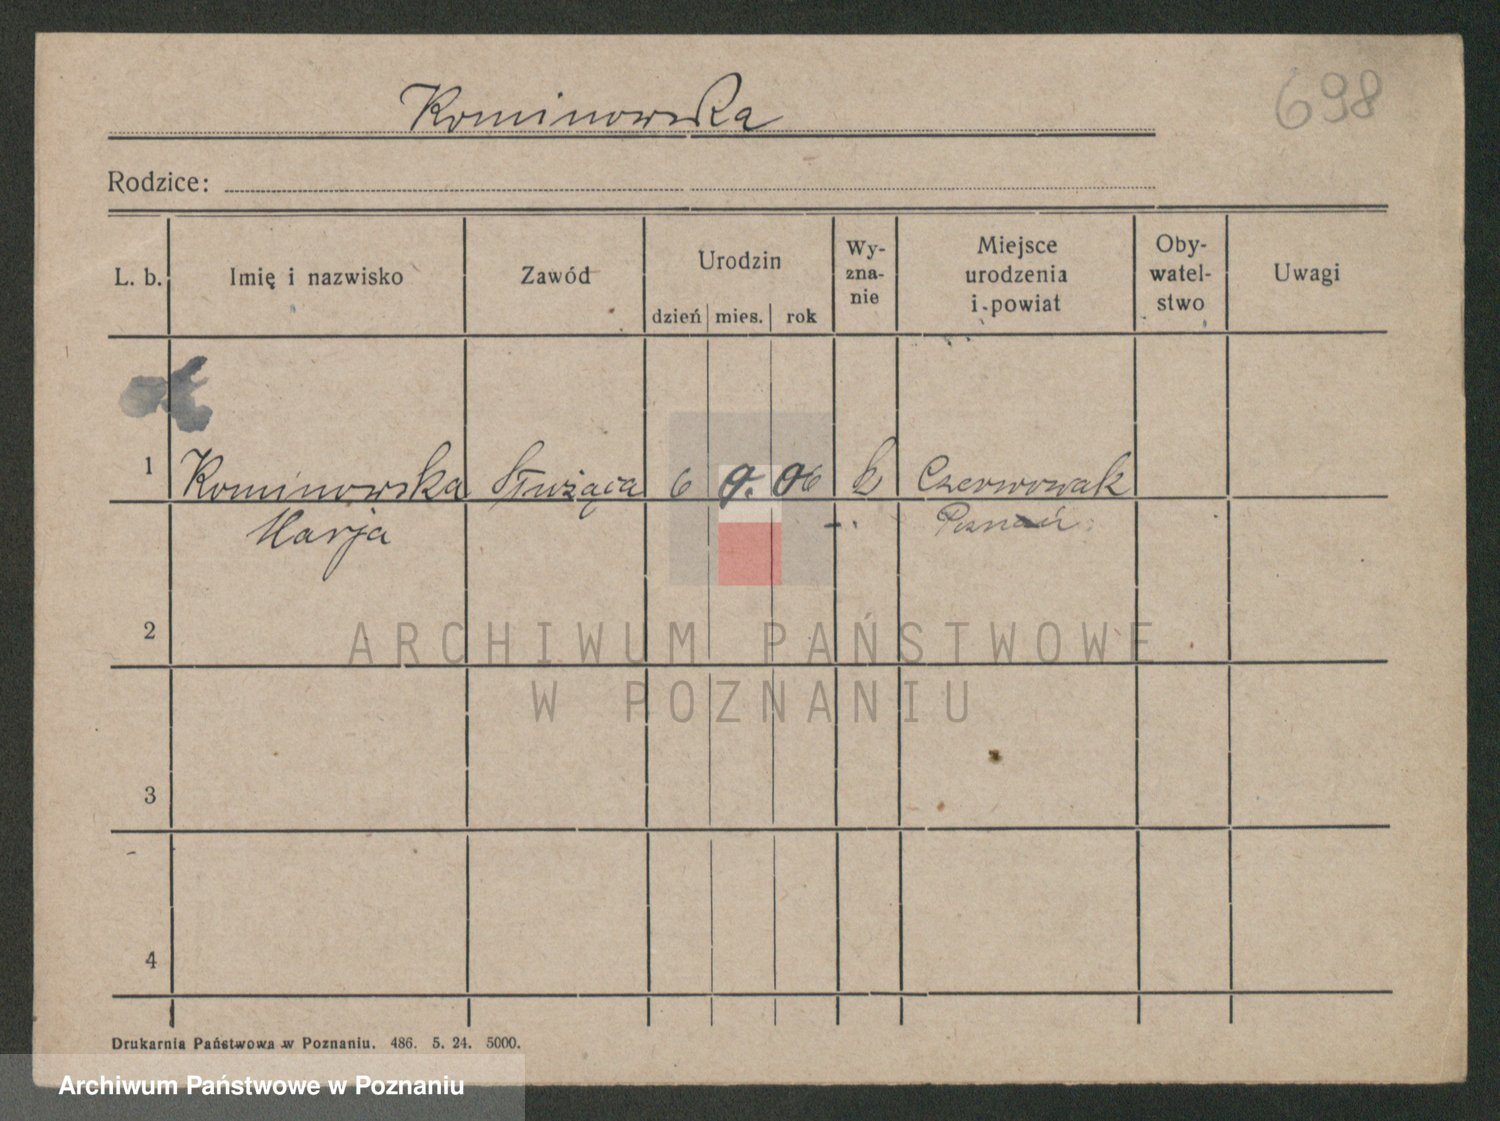 Kominowska
698
Rodzice:
L. b. Imię i nazwisko Zawód Urodzin dzień mies. rok Wy-zna-nie Miejsce urodzenia i powiat Oby-watel-stwo Uwagi
1 Kominowska Służąca 6 9. 06 k Czerwonak
Marja Poznań
2
3
4
Drukarnia Państwowa w Poznaniu. 486. 5. 24. 5000.
ARCHIWUM PAŃSTWOWE
W POZNANIU
Archiwum Państwowe w Poznaniu